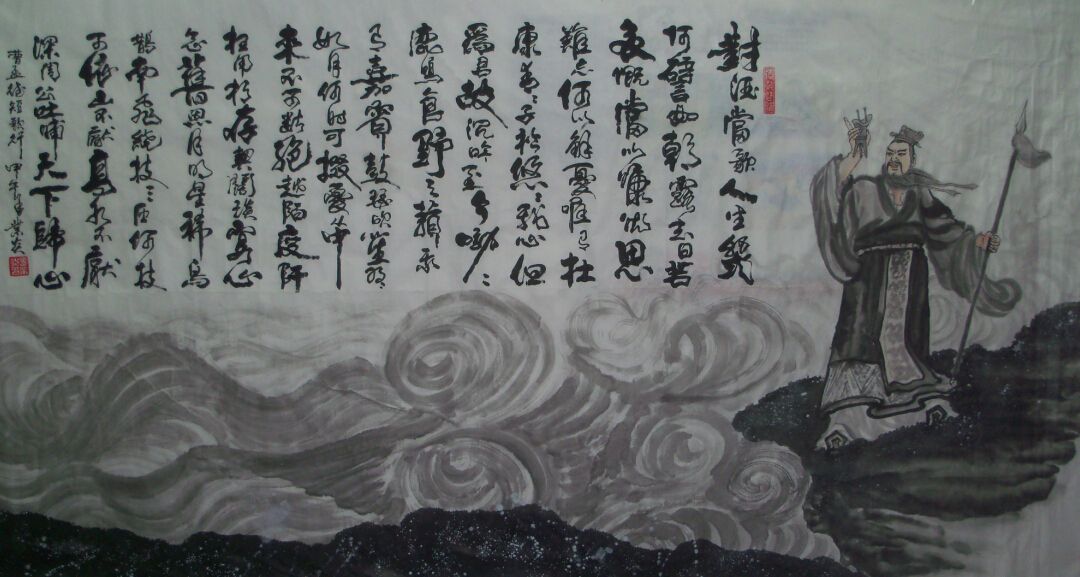 對酒當歌人生幾
何譬如朝露去日苦
多慨當以慷幽思
難忘何以解憂唯有杜
康青々子衿悠々我心但
爲君故沉吟至今呦々
鹿鳴食野之蘋我
有嘉賓鼓瑟吹笙明
如月何时可掇憂中
來不可斷絕越陌度阡
枉用相存契闊談宴心
念舊恩月明星稀烏
鵲南飛繞枝三匝何枝
可依山不厭高水不厭
深周公吐哺天下歸心
曹孟德短歌行 甲午年